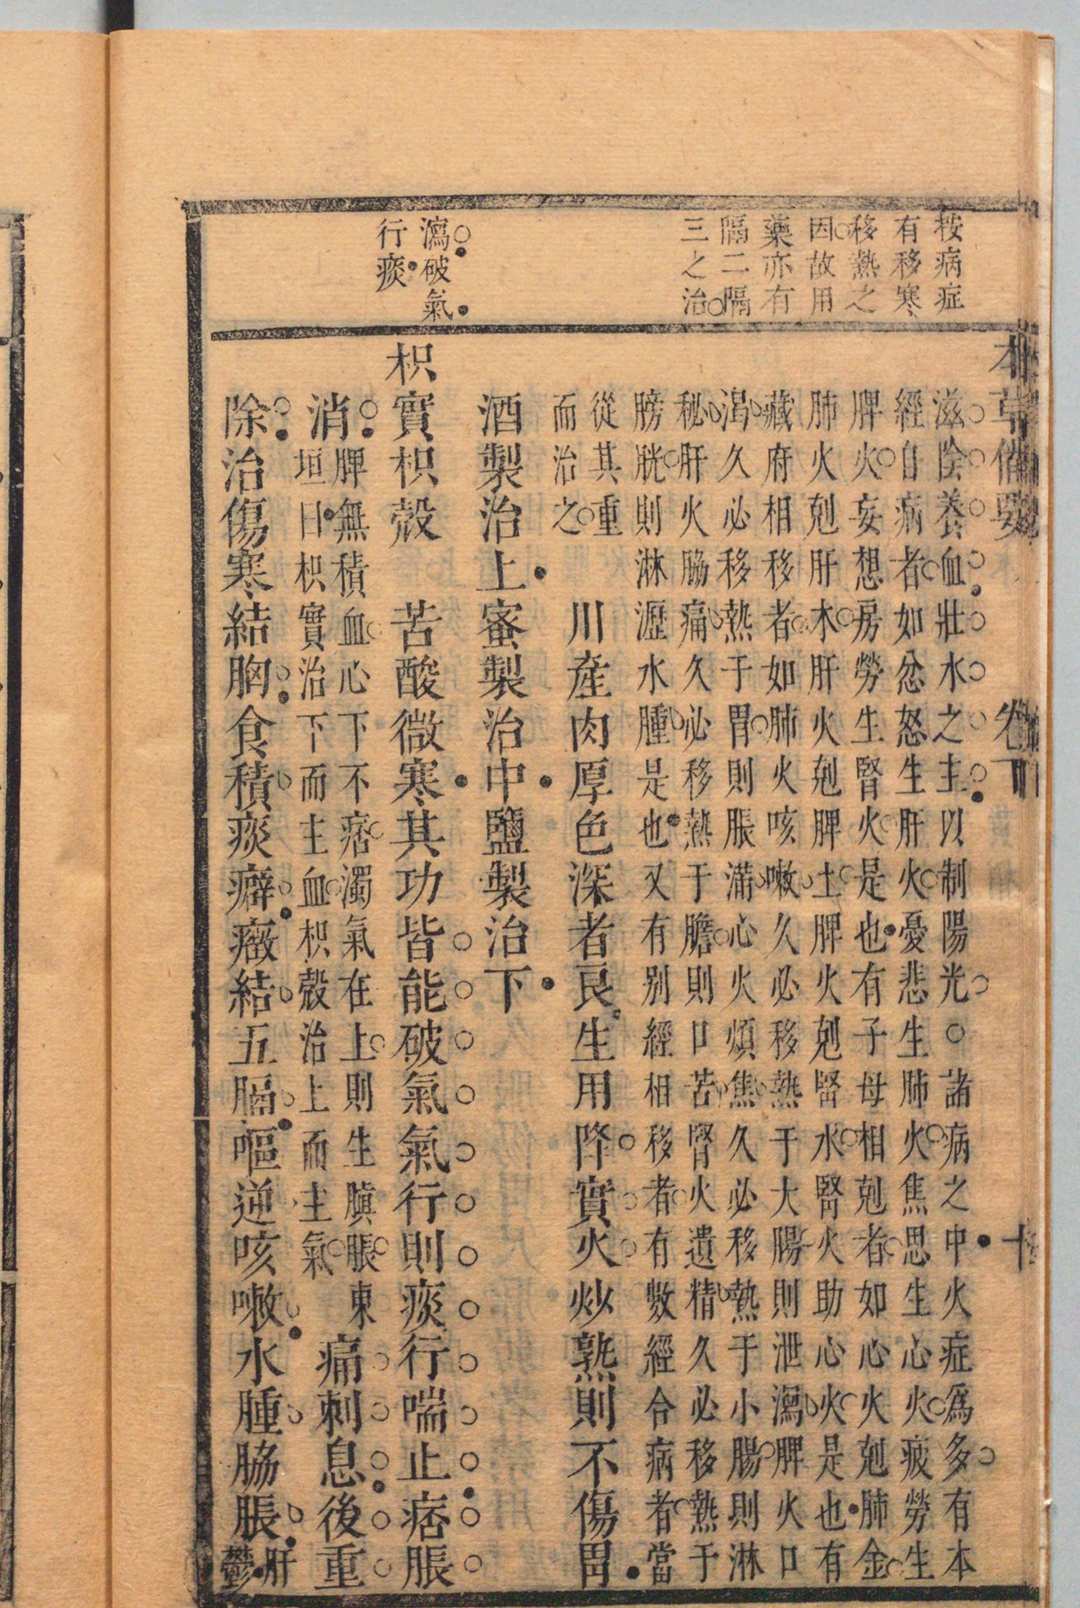 按病症
有移寒
移熱之
因故用
藥亦有
隔二隔
三之治
瀉破氣
行痰
本草備要
卷下
滋陰養血壯水之主以制陽光○諸病之中火症爲多有本
經自病者如忿怒生肝火憂悲生肺火焦思生心火疲勞生
脾火妄想房勞生腎火是也有子母相剋者如心火剋肺金
肺火剋肝木肝火剋脾土脾火剋腎水腎火助心火是也有
藏府相移者如肺火咳嗽久必移熱于大腸則泄瀉脾火口
渴久必移熱于胃則脹滿心火煩焦久必移熱于小腸則淋
秘肝火脇痛久必移熱于膽則口苦腎火遺精久必移熱于
膀胱則淋瀝水腫是也又有別經相移者有數經合病者當
從其重
而治之
川產肉厚色深者良生用降實火炒熟則不傷胃
酒製治上蜜製治中鹽製治下
枳實枳殼 苦酸微寒其功皆能破氣氣行則痰行喘止痞脹
消脾無積血心下不痞濁氣在上則生䐜脹東
垣曰枳實治下而主血枳殼治上而主氣
痛刺息後重
除治傷寒結胸食積痰癖癥結五膈嘔逆咳嗽水腫脇脹肝
鬱